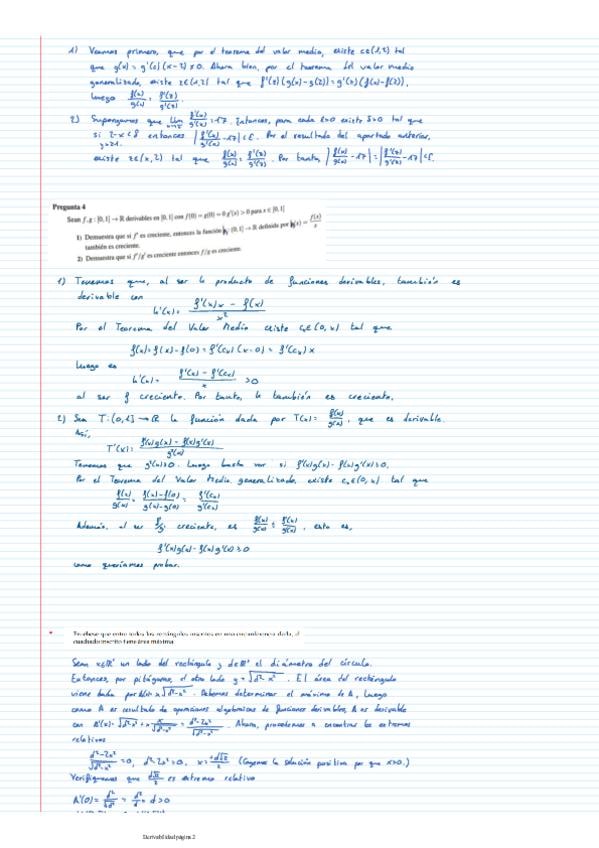 1) Veamos primero, que por el teorema del valor medio, existe c∈(1,2) tal
que g(x) = g'(c)(x-2) ≠ 0. Ahora bien, por el teorema del valor medio
generalizado, existe z∈(x,2) tal que f'(z)(g(x)-g(2)) = g'(z)(f(x)-f(2)),
luego f(x)/g(x) = f'(z)/g'(z).
2) Supongamos que lim f'(x)/g'(x) = 17. Entonces, para cada ε>0 existe δ>0 tal que
si 2-x<δ entonces |f'(x)/g'(x) - 17| < ε. Por el resultado del apartado anterior,
existe z∈(x,2) tal que f(x)/g(x) = f'(z)/g'(z). Por tanto, |f(x)/g(x) - 17| = |f'(z)/g'(z) - 17| < ε.
Pregunta 4
Sean f, g : [0, 1] → ℝ derivables en [0, 1] con f(0) = g(0) = 0 g'(x) > 0 para x ∈ [0, 1]
1) Demuestra que si f' es creciente, entonces la función h : (0, 1] → ℝ definida por h(x) = f(x)/x
también es creciente.
2) Demuestra que si f'/g' es creciente entonces f/g es creciente.
1) Tenemos que, al ser h producto de funciones derivables, también es
derivable con
h'(x) = (f'(x)x - f(x))/x²
Por el Teorema del Valor Medio existe cₓ∈(0,x) tal que
f(x) = f(x) - f(0) = f'(cₓ)(x-0) = f'(cₓ)x
luego es
h'(x) = (f'(x) - f'(cₓ))/x >0
al ser f creciente. Por tanto, h también es creciente.
2) Sea T:(0,1] → ℝ la función dada por T(x) = f(x)/g(x), que es derivable.
Así,
T'(x) = (f'(x)g(x) - f(x)g'(x))/g²(x)
Tenemos que g²(x)>0. Luego basta ver si f'(x)g(x) - f(x)g'(x)>0.
Por el Teorema del Valor Medio generalizado, existe cₓ∈(0,x) tal que
f(x)/g(x) = (f(x)-f(0))/(g(x)-g(0)) = f'(cₓ)/g'(cₓ)
Además, al ser f'/g' creciente, es f(x)/g(x) ≤ f'(x)/g'(x), esto es,
f'(x)g(x) - f(x)g'(x) ≥ 0
como queríamos probar.
* Pruébese que entre todos los rectángulos inscritos en una circunferencia dada, el
cuadrado inscrito tiene área máxima.
Sean x∈ℝ⁺ un lado del rectángulo y d∈ℝ⁺ el diámetro del círculo.
Entonces, por pitágoras, el otro lado y = √(d²-x²). El área del rectángulo
viene dada por A(x) = x√(d²-x²). Debemos determinar el máximo de A, luego
como A es resultado de operaciones algebraicas de funciones derivables, A es derivable
con A'(x) = √(d²-x²) + x·(-x)/√(d²-x²) = (d²-2x²)/√(d²-x²). Ahora, procedemos a encontrar los extremos
relativos
(d²-2x²)/√(d²-x²) = 0, d²-2x²=0, x = ±d√2/2 (Cogemos la solución positiva por que x>0.)
Verifiquemos que d√2/2 es extremo relativo
A'(0) = d²/√d² = d²/d = d>0
Derivabilidad página 2